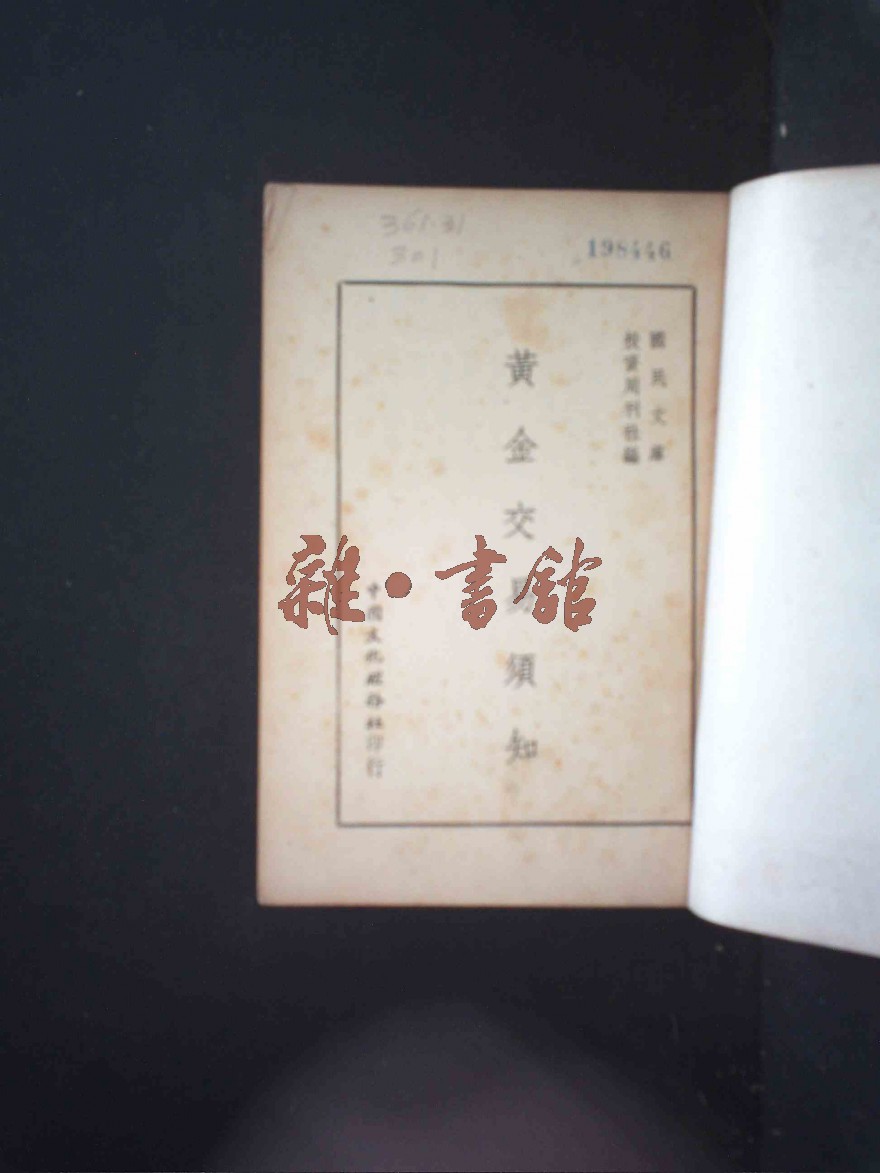 361.31
301
198446
國民文庫
投資周刊社編
黃金交易須知
中國文化服務社印行
雜·書館